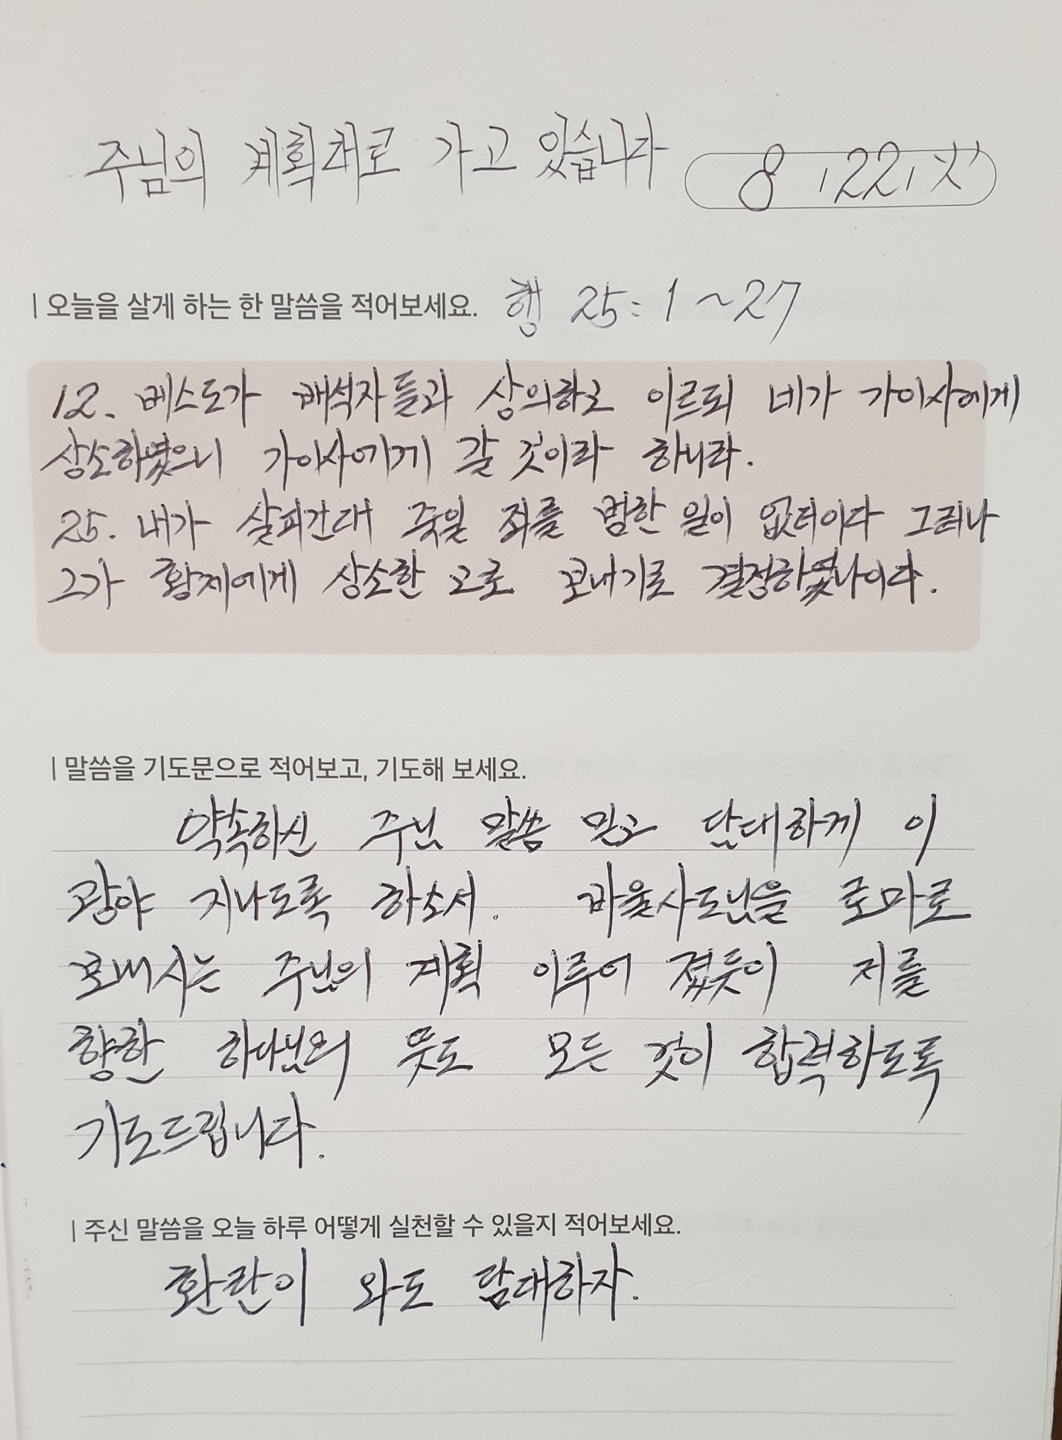 주님의 계획대로 가고 있습니다 8, 22, 火
| 오늘을 살게 하는 한 말씀을 적어보세요. 행 25:1~27
12. 베스도가 배석자들과 상의하고 이르되 네가 가이사에게
상소하였으니 가이사에게 갈 것이라 하니라.
25. 내가 살피건대 죽일 죄를 범한 일이 없더이다 그러나
그가 황제에게 상소한 고로 보내기로 결정하였나이다.
| 말씀을 기도문으로 적어보고, 기도해 보세요.
약속하신 주님 말씀 믿고 담대하게 이
광야 지나도록 하소서. 바울사도님을 로마로
보내시는 주님의 계획 이루어 졌듯이 저를
향한 하나님의 뜻도 모든 것이 합력하도록
기도드립니다.
| 주신 말씀을 오늘 하루 어떻게 실천할 수 있을지 적어보세요.
환란이 와도 담대하자.